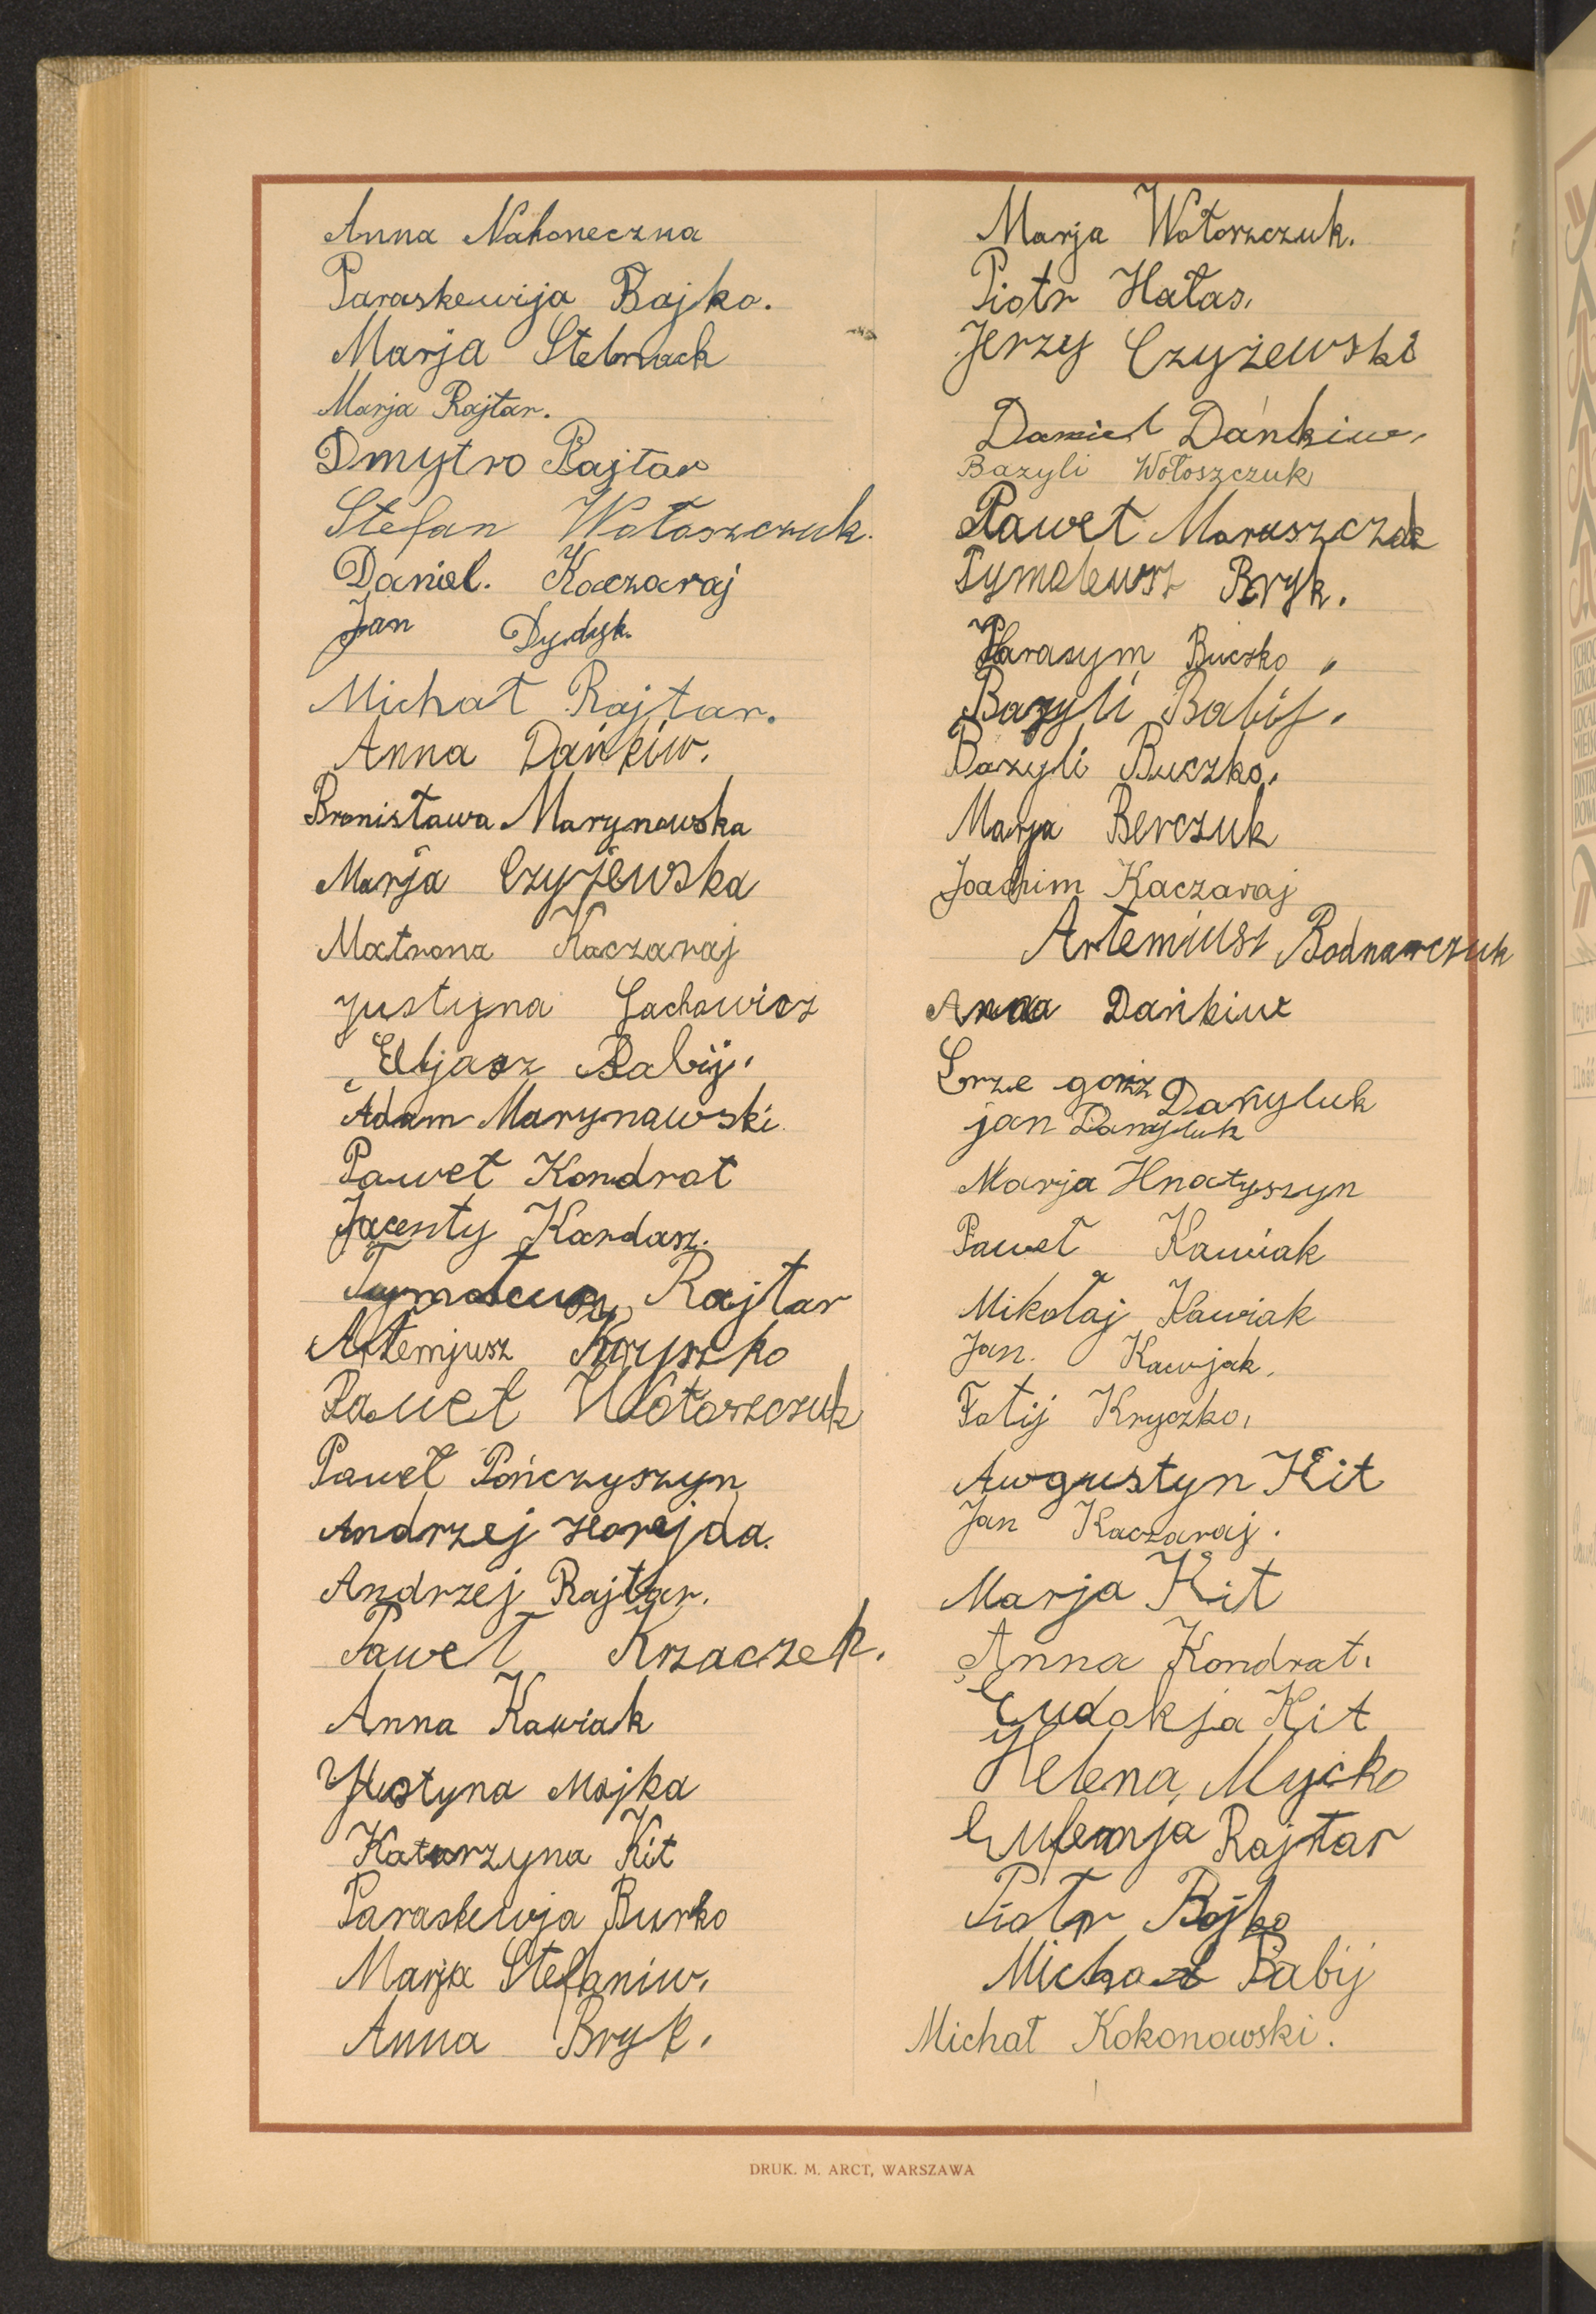 Anna Nakoneczna
Paraskewija Bajko.
Marja Stelmach
Marja Rajtar.
Dmytro Rajtar
Stefan Wołoszczuk.
Daniel. Kaczaraj
Jan Dydyk.
Michał Rajtar.
Anna Dańkiw.
Bronisława Marynowska
Marja Czyżewska
Matrona Kaczaraj
Justyna Lachowicz
Eljasz Babij.
Adam Marynawski.
Paweł Kondrat
Jacenty Kardasz.
Tymoteusz Rajtar
Artemjusz Kryszko
Paweł Wołoszczuk
Paweł Pończyszyn
Andrzej Horajda.
Andrzej Rajtar.
Paweł Krzaczek.
Anna Kawiak
Justyna Majka
Katarzyna Kit
Paraskewja Burko
Marja Stefaniw.
Anna Bryk.
Marja Wołoszczuk.
Piotr Hałas.
Jerzy Czyżewski
Daniel Dańkiw.
Bazyli Wołoszczuk
Paweł Maruszczak
Tymoteusz Bryk.
Harasym Buczko.
Bazyli Babij.
Bazyli Buczko.
Marja Berczuk
Joachim Kaczaraj
Artemiusz Bodnarczuk
Anna Dańkiw
Grze gorz Danyluk
jan Danyluk
Marja Hnatyszyn
Paweł Kawiak
Mikołaj Kawiak
Jan. Kawjak.
Fotij Kryczko.
Awgustyn Kit
Jan Kaczaraj.
Marja Kit
Anna Kondrat.
Eudokja Kit
Helena Mycko
Eufemja Rajtar
Piotr Bojko
Michał Babij
Michał Kokonowski.
DRUK. M. ARCT, WARSZAWA